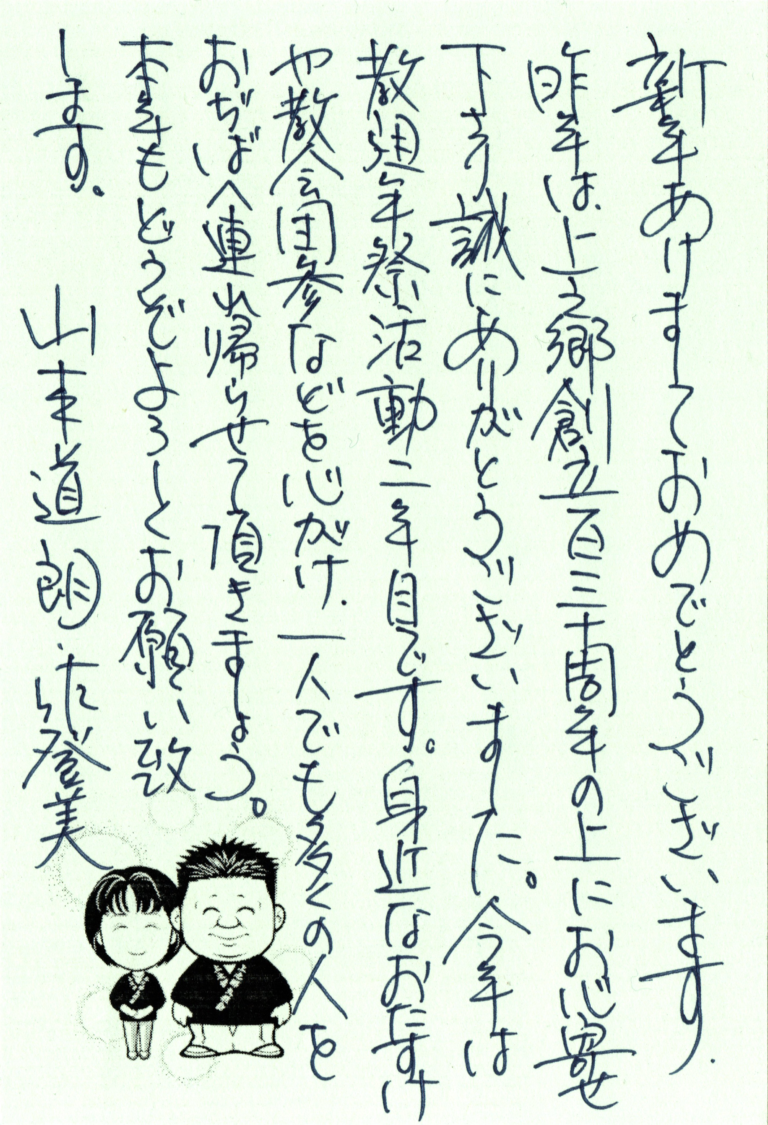 新年あけましておめでとうございます.
昨年は、上之郷創立百三十周年の上にお心寄せ
下さり誠にありがとうございました。今年は
教祖年祭活動二年目です。身近なおたすけ
や教会団参などを心がけ、一人でも多くの人を
おぢばへ連れ帰らせて頂きましょう。
本年もどうぞよろしくお願い致
します。
山本道朗・比登美